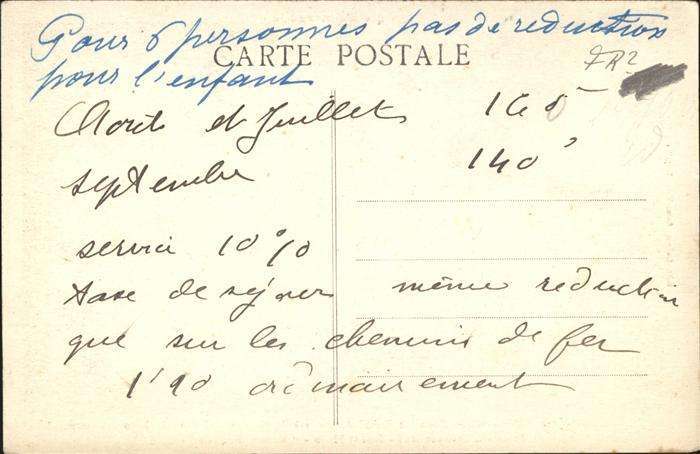 Pour 6 personnes pas de reduction
CARTE POSTALE
pour l'enfant
Août et Juillet 165
septembre 140
service 10%
taxe de séjour même reduction
que sur les chemins de fer
1'90 ordinairement